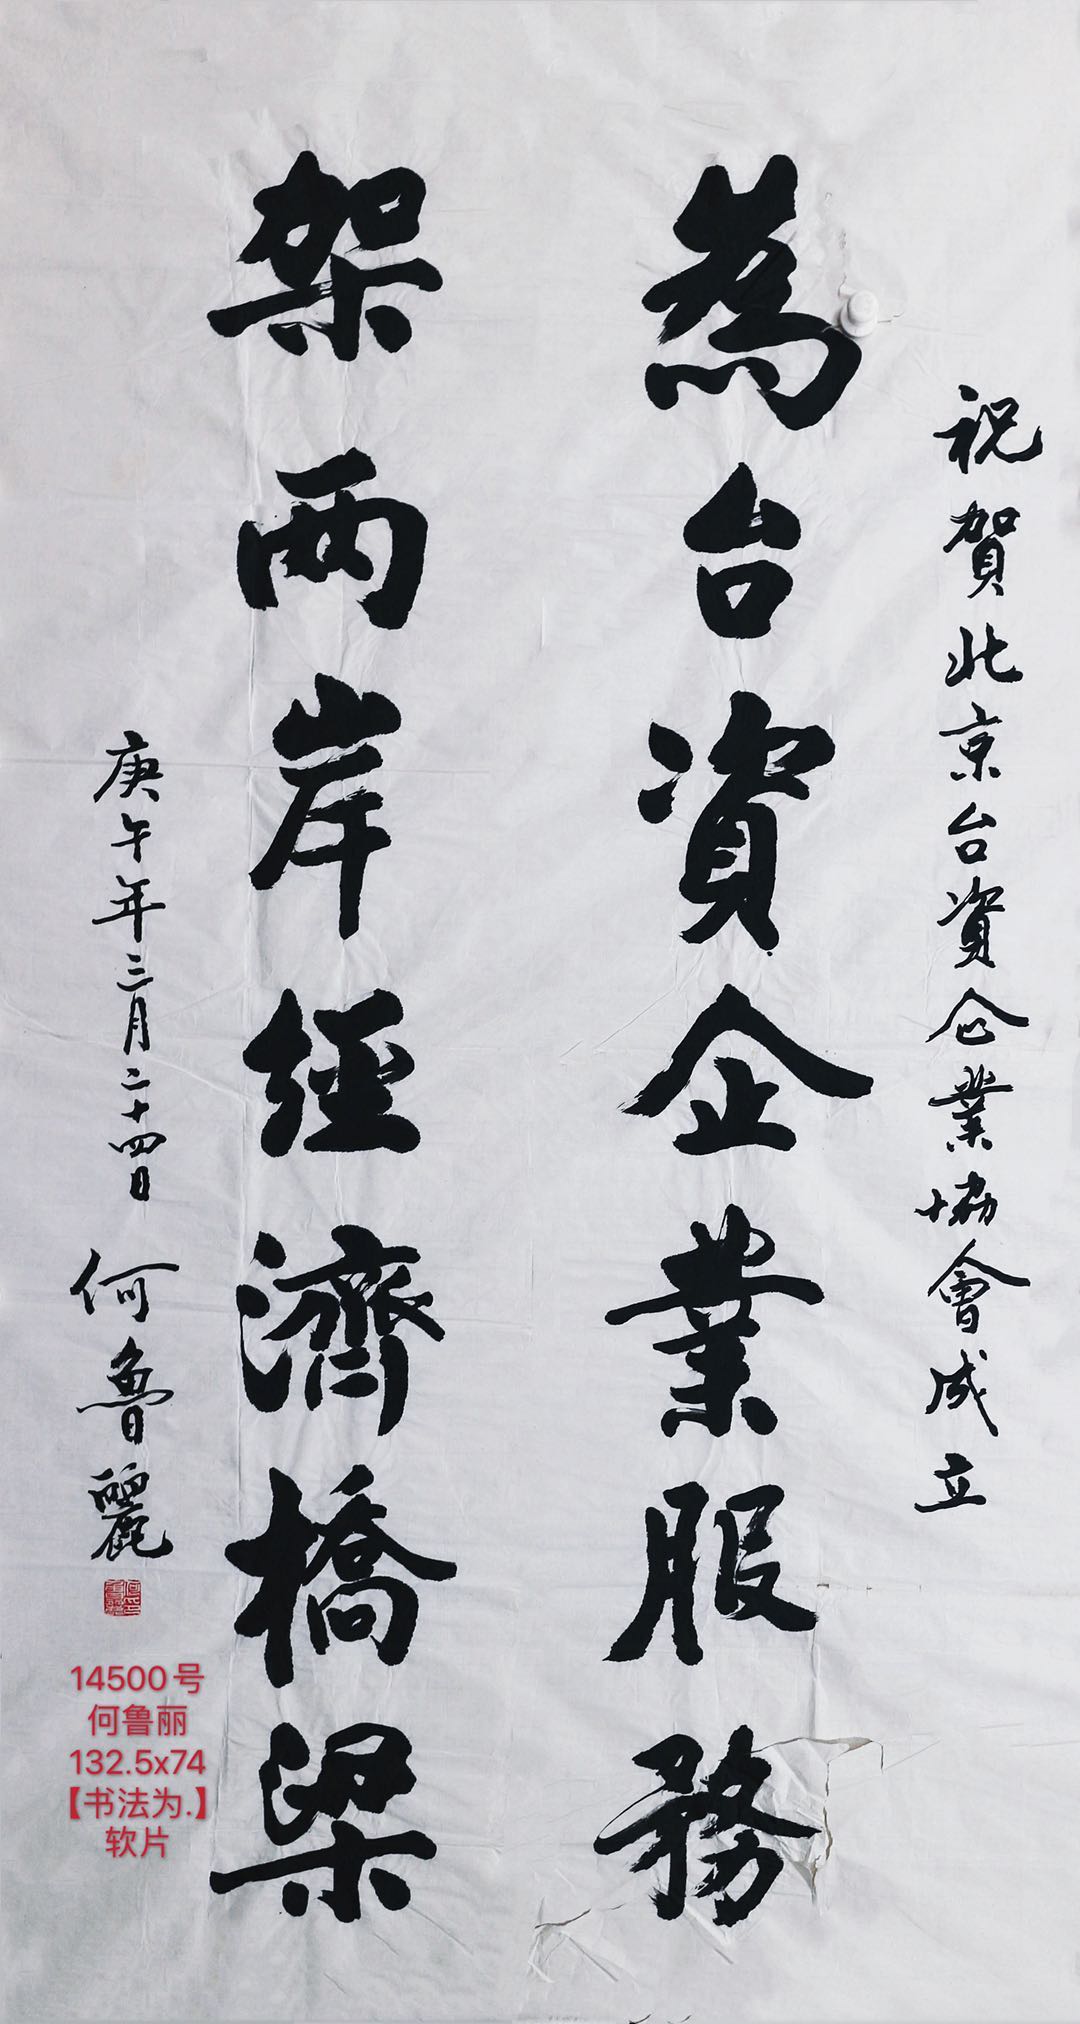 祝賀北京台資企業協會成立
為台資企業服務
架兩岸經濟橋梁
庚午年三月二十四日
何魯麗
14500号
何鲁丽
132.5x74
【书法为.】
软片